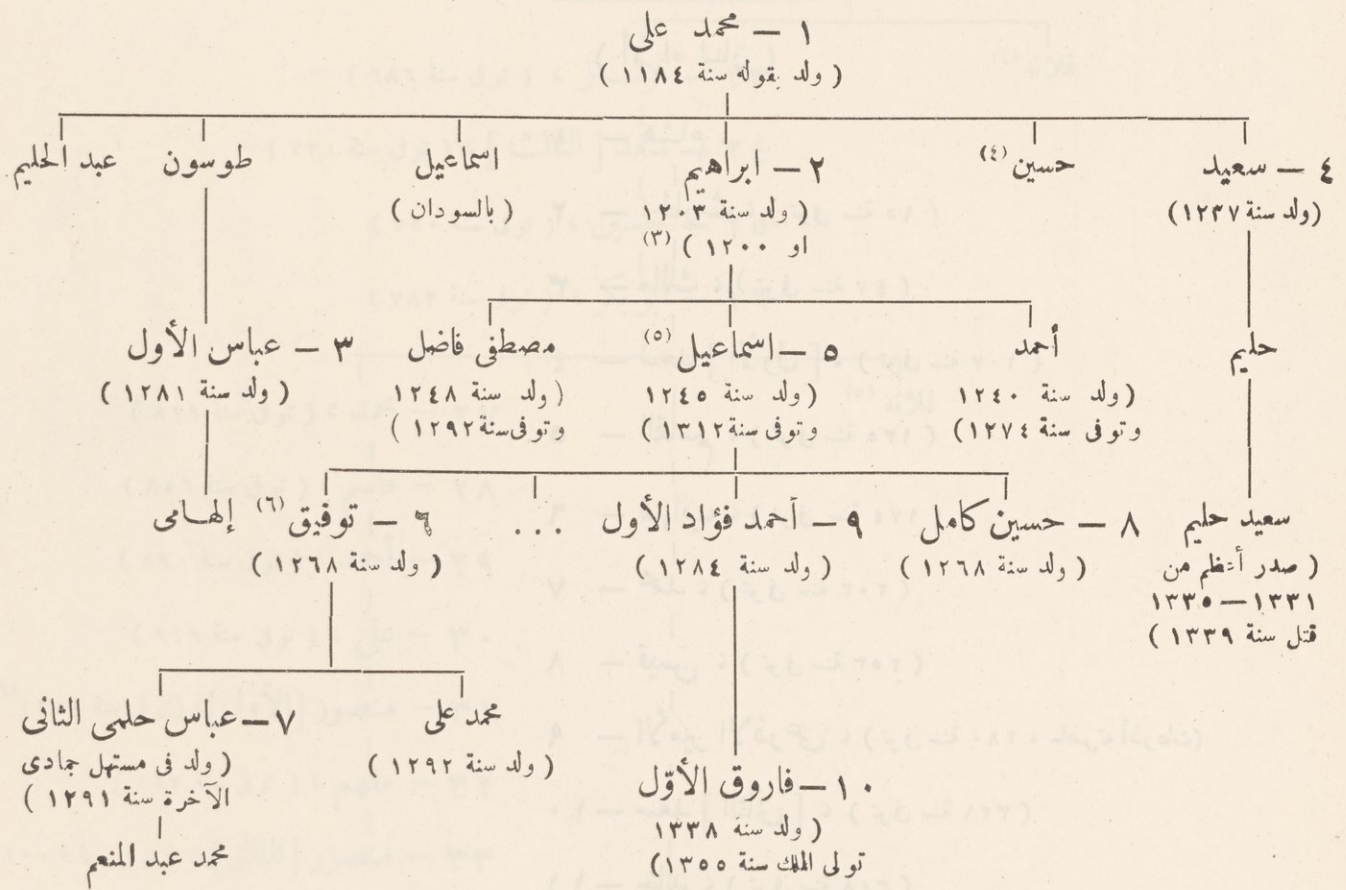 ١ — محمد على
( ولد بقوله سنة ١١٨٤ )
٤ — سعيد
(ولد سنة ١٢٣٧)
حسين (٤)
٢ — ابراهيم
( ولد سنة ١٢٠٣
او ١٢٠٠ ) (٣)
اسماعيل
( بالسودان )
طوسون
عبد الحليم
حليم
أحمد
(ولد سنة ١٢٤٠
وتوفى سنة ١٢٧٤)
٥ — إسماعيل (٥)
(ولد سنة ١٢٤٥
وتوفى سنة ١٣١٢)
مصطفى فاضل
(ولد سنة ١٢٤٨
وتوفى سنة ١٢٩٢ )
٣ — عباس الأول
( ولد سنة ١٢٨١)
سعيد حليم
( صدر أعظم من
١٣٣١ — ١٣٣٥
قتل سنة ١٣٣٩ )
٨ — حسين كامل
( ولد سنة ١٢٦٨ )
٩ — أحمد فؤاد الأول
( ولد سنة ١٢٨٤ )
...
٦ — توفيق (٦)
( ولد سنة ١٢٦٨ )
إلهامى
محمد على
( ولد سنة ١٢٩٢ )
٧ — عباس حلمى الثانى
( ولد فى مستهل جمادى
الآخرة سنة ١٢٩١ )
محمد عبد المنعم
١٠ — فاروق الأوّل
( ولد سنه ١٣٣٨
تولى الملك سنة ١٣٥٥)